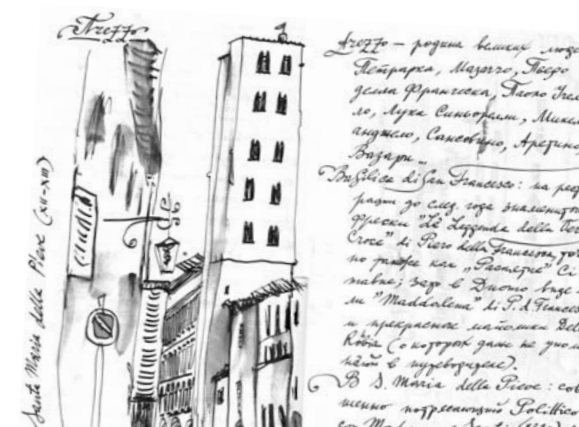 Arezzo
Santa Maria della Pieve (XII-XIII)
Arezzo – родина великих люде
Петрарка, Мазаччо, Пьеро
делла Франческа, Паоло Учел
ло, Лука Синьорелли, Микел
анджело, Сансовино, Аретино
Вазари...
Basilica di San Francesco: на рест
рации до след. года знаменитые
фрески "La Leggenda della Vera
Croce" di Piero della Francesca,
но также как "Распятие" Ci
мабуе; зато в Duomo виде-
ли "Maddalena" di P. d. Frances
и прекрасные майолики Dell
Robbia (о которых даже не упом
в путеводителе).
В S. Maria della Pieve: сов
шенно потрясающий Polittico